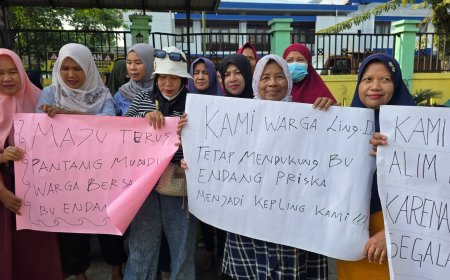 MAJU TERUS
PANTANG MUNDU
WARGA BERSA
BU ENDAN
KAMI WARGA LING.D
TETAP MENDUKUNG BU
ENDANG PRISKA
MENJADI KEPLING KAMI !!!
KAMI
ALIM
KARENA
SEGALA